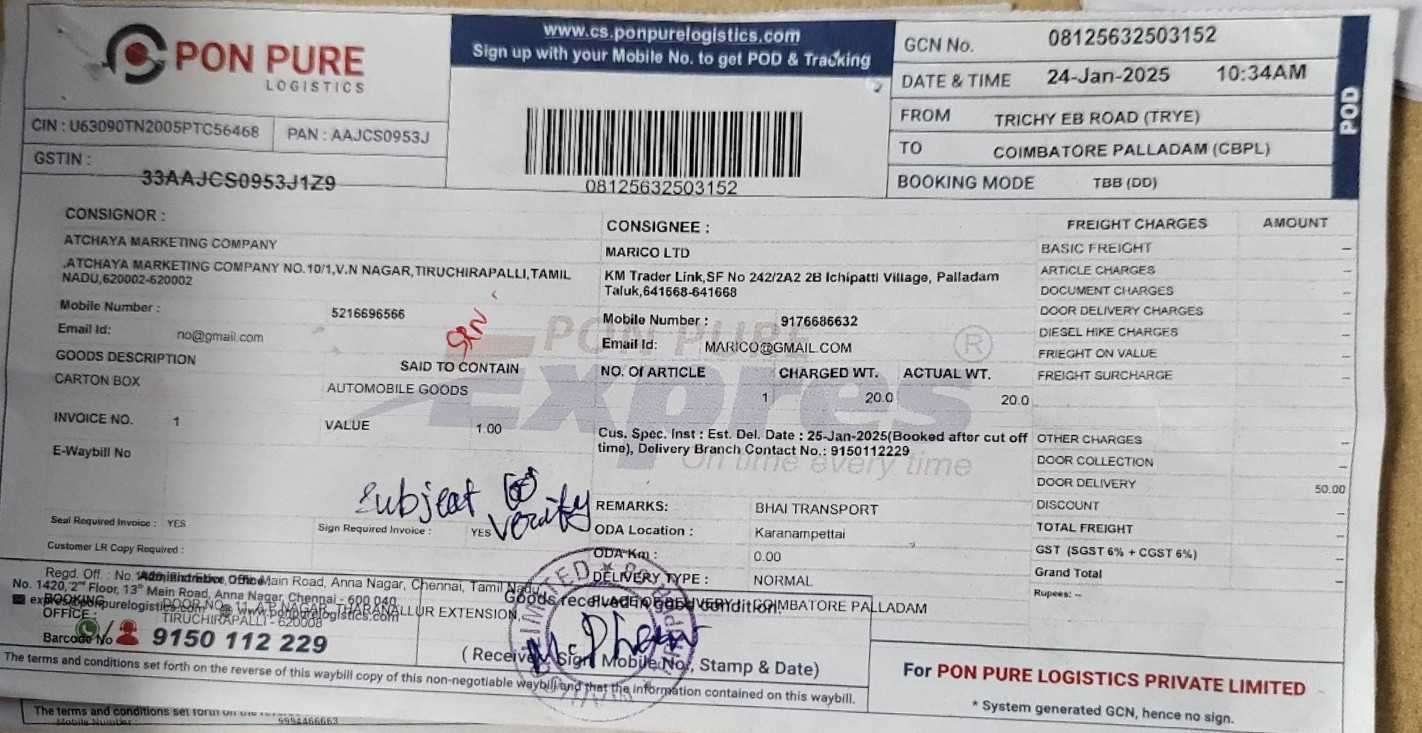 PON PURE
LOGISTICS
www.cs.ponpurelogistics.com
Sign up with your Mobile No. to get POD & Tracking
GCN No. 08125632503152
DATE & TIME 24-Jan-2025 10:34AM
FROM TRICHY EB ROAD (TRYE)
TO COIMBATORE PALLADAM (CBPL)
BOOKING MODE TBB (DD)
POD
CIN : U63090TN2005PTC56468 PAN : AAJCS0953J
GSTIN : 33AAJCS0953J1Z9
08125632503152
CONSIGNOR :
ATCHAYA MARKETING COMPANY
,ATCHAYA MARKETING COMPANY NO.10/1,V.N NAGAR,TIRUCHIRAPALLI,TAMIL
NADU,620002-620002
Mobile Number : 5216696566
Email Id: no@gmail.com
SRN
GOODS DESCRIPTION SAID TO CONTAIN
CARTON BOX AUTOMOBILE GOODS
INVOICE NO. 1 VALUE 1.00
E-Waybill No
Subject to
verify
Seal Required Invoice : YES Sign Required Invoice : YES
Customer LR Copy Required :
CONSIGNEE :
MARICO LTD
KM Trader Link,SF No 242/2A2 2B Ichipatti Village, Palladam
Taluk,641668-641668
Mobile Number : 9176686632
Email Id: MARICO@GMAIL.COM
NO. Of ARTICLE CHARGED WT. ACTUAL WT.
1 20.0 20.0
PON PURE
Expres ®
On time every time
Cus. Spec. Inst : Est. Del. Date : 25-Jan-2025(Booked after cut off
time), Delivery Branch Contact No.: 9150112229
REMARKS: BHAI TRANSPORT
ODA Location : Karanampettai
ODA Km : 0.00
DELIVERY TYPE : NORMAL
PLACE OF DELIVERY : COIMBATORE PALLADAM
FREIGHT CHARGES AMOUNT
BASIC FREIGHT –
ARTICLE CHARGES –
DOCUMENT CHARGES –
DOOR DELIVERY CHARGES –
DIESEL HIKE CHARGES –
FRIEGHT ON VALUE –
FREIGHT SURCHARGE –
OTHER CHARGES –
DOOR COLLECTION –
DOOR DELIVERY 50.00
DISCOUNT –
TOTAL FREIGHT –
GST (SGST 6% + CGST 6%) –
Grand Total –
Rupees: --
Regd. Off. : No. Main Road, Anna Nagar, Chennai, Tamil Nadu
Administrative Office
No. 1420, 2nd Floor, 13th Main Road, Anna Nagar, Chennai - 600 040
www.ponpurelogistics.com
BOOKING
OFFICE : DOOR NO. 11, A.P NAGAR, THARANALLUR EXTENSION,
TIRUCHIRAPALLI - 620008
Barcode No 9150 112 229
Goods received in good condition
LIMITED
(Receiver Sign, Mobile No., Stamp & Date)
For PON PURE LOGISTICS PRIVATE LIMITED
* System generated GCN, hence no sign.
The terms and conditions set forth on the reverse of this waybill copy of this non-negotiable waybill and that the information contained on this waybill.
The terms and conditions set forth on
Mobile Number : 9994466663